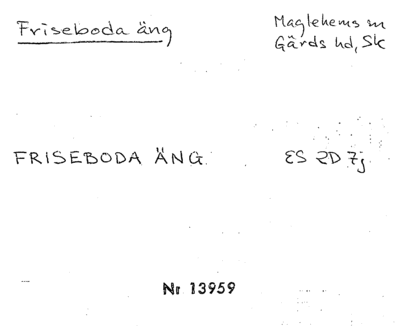 Friseboda äng
Maglehems sn
Gärds hd, Sk
FRISEBODA ÄNG
ES 2D 7j
Nr 13959